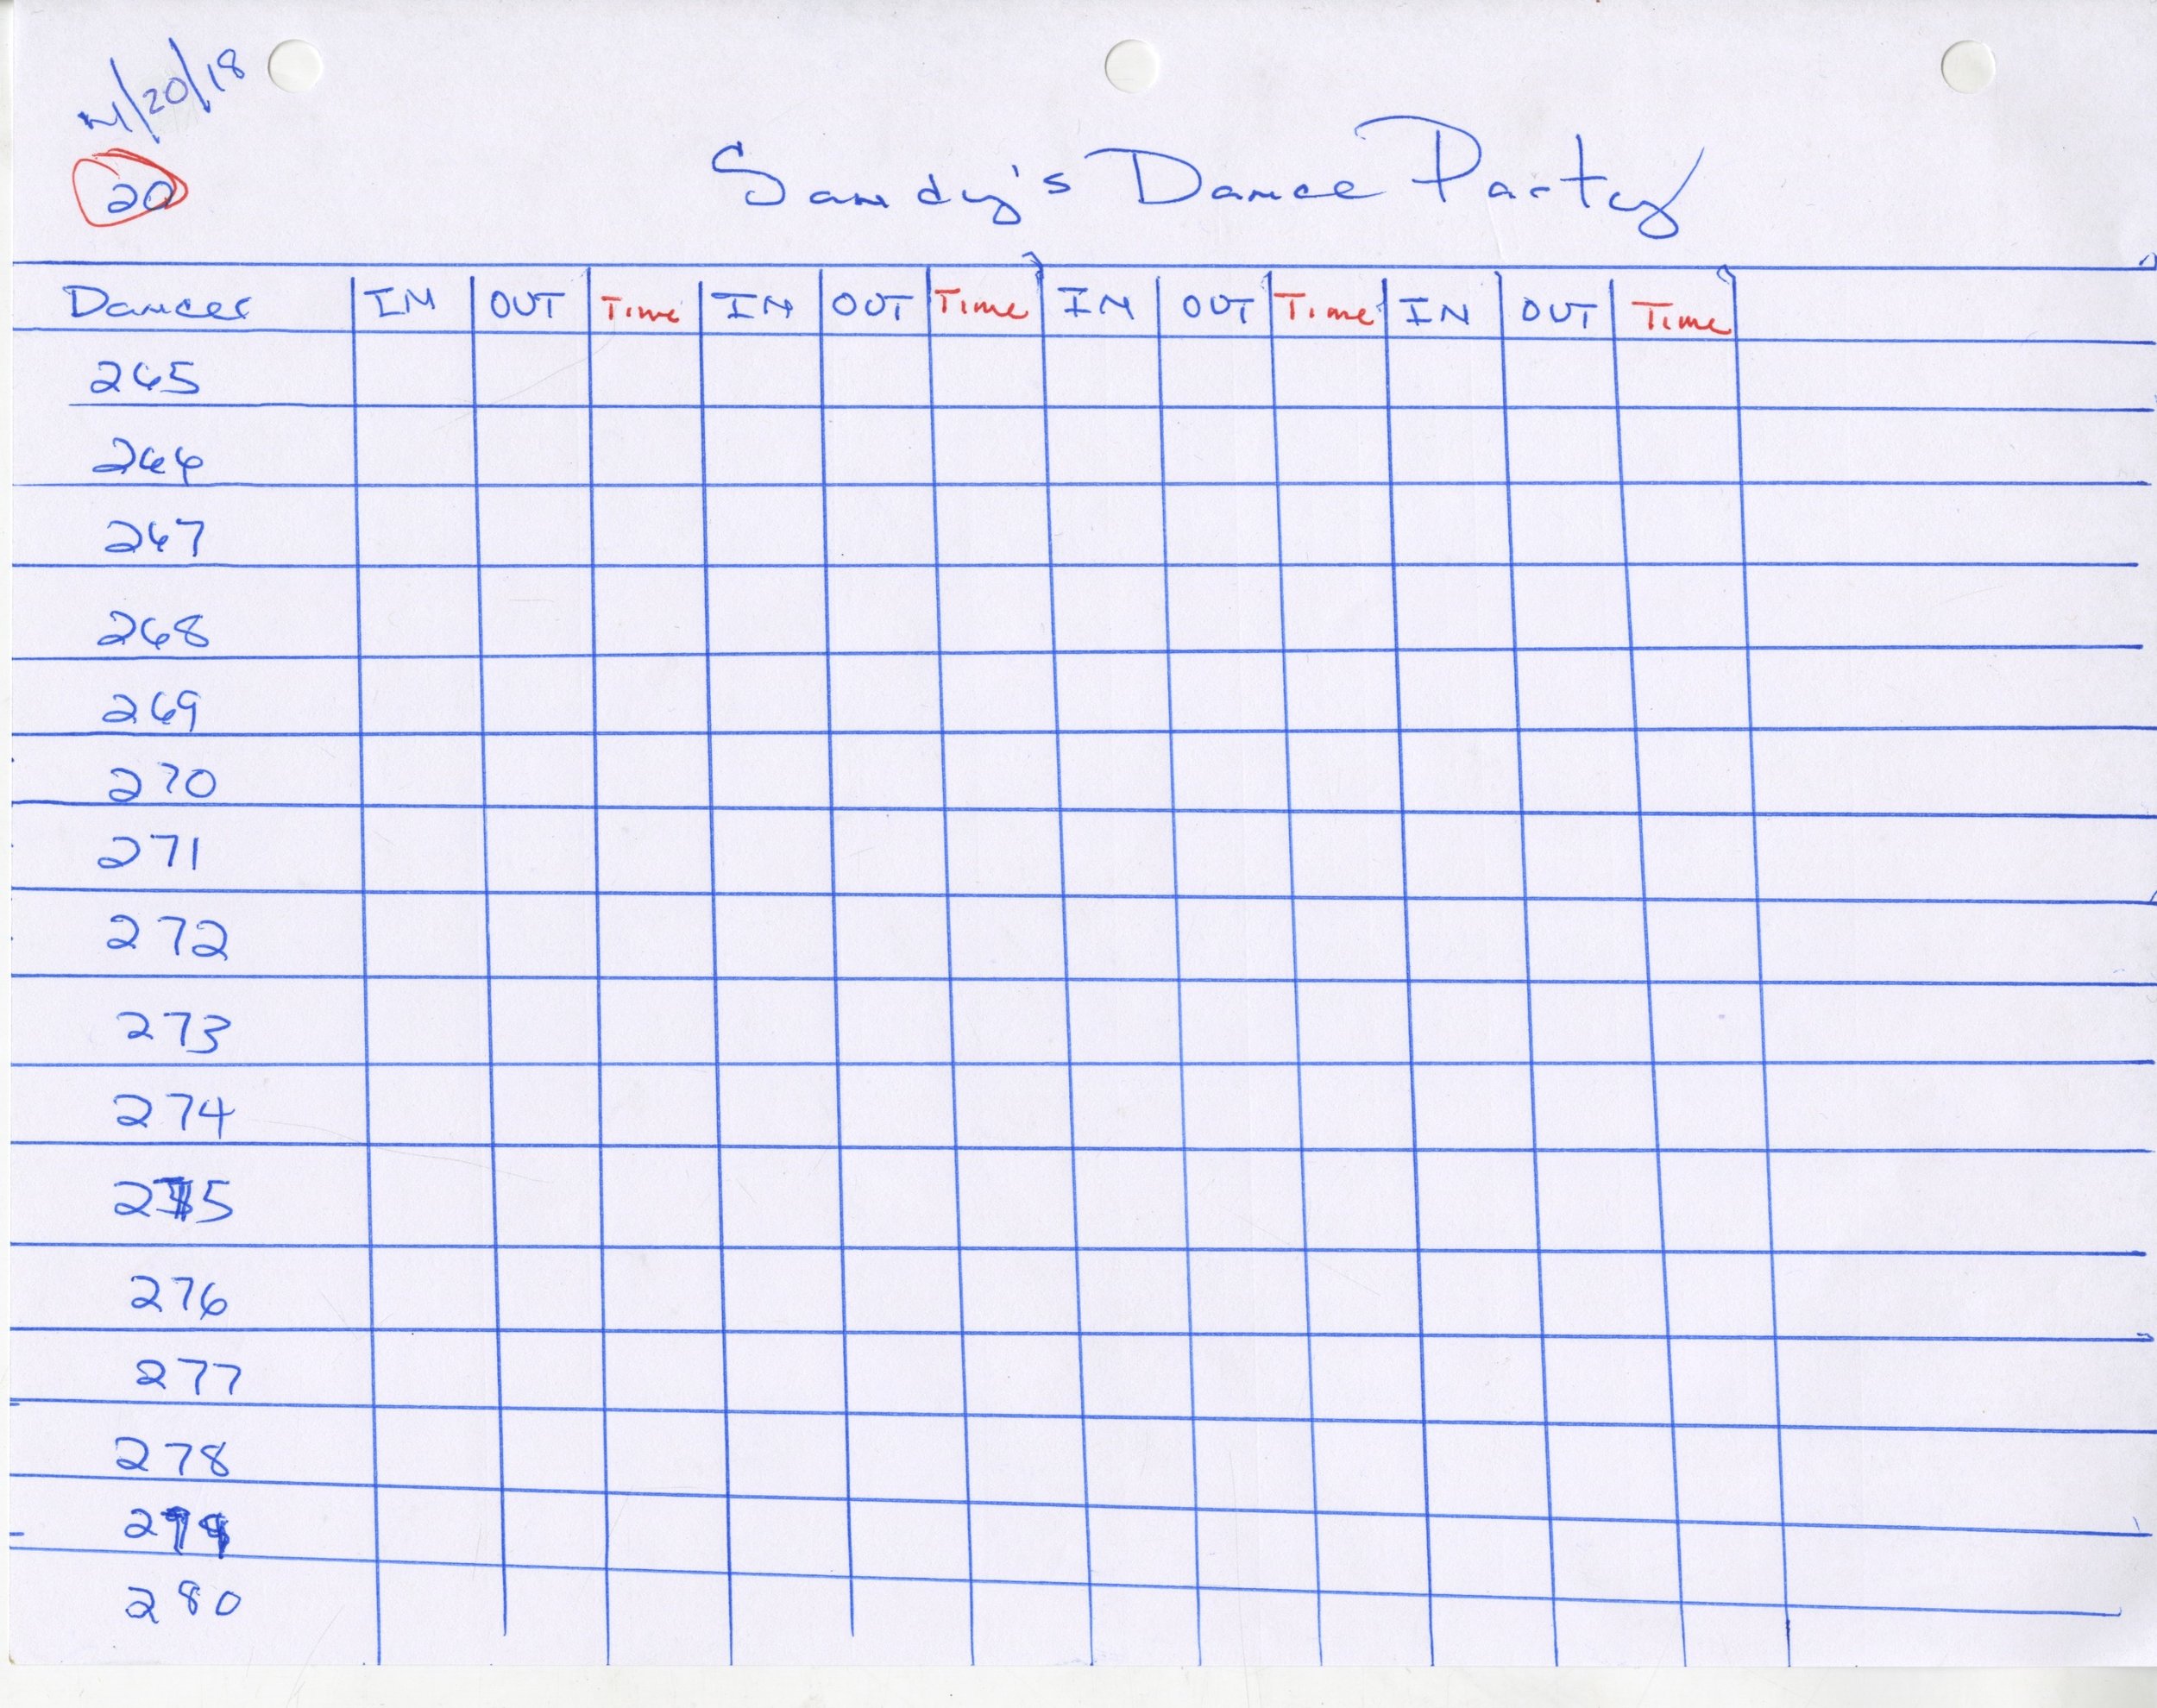 20
Sandy's Dance Party
Dancer IN OUT Time IN OUT Time IN OUT Time IN OUT Time
265
266
267
268
269
270
271
272
273
274
275
276
277
278
279
280